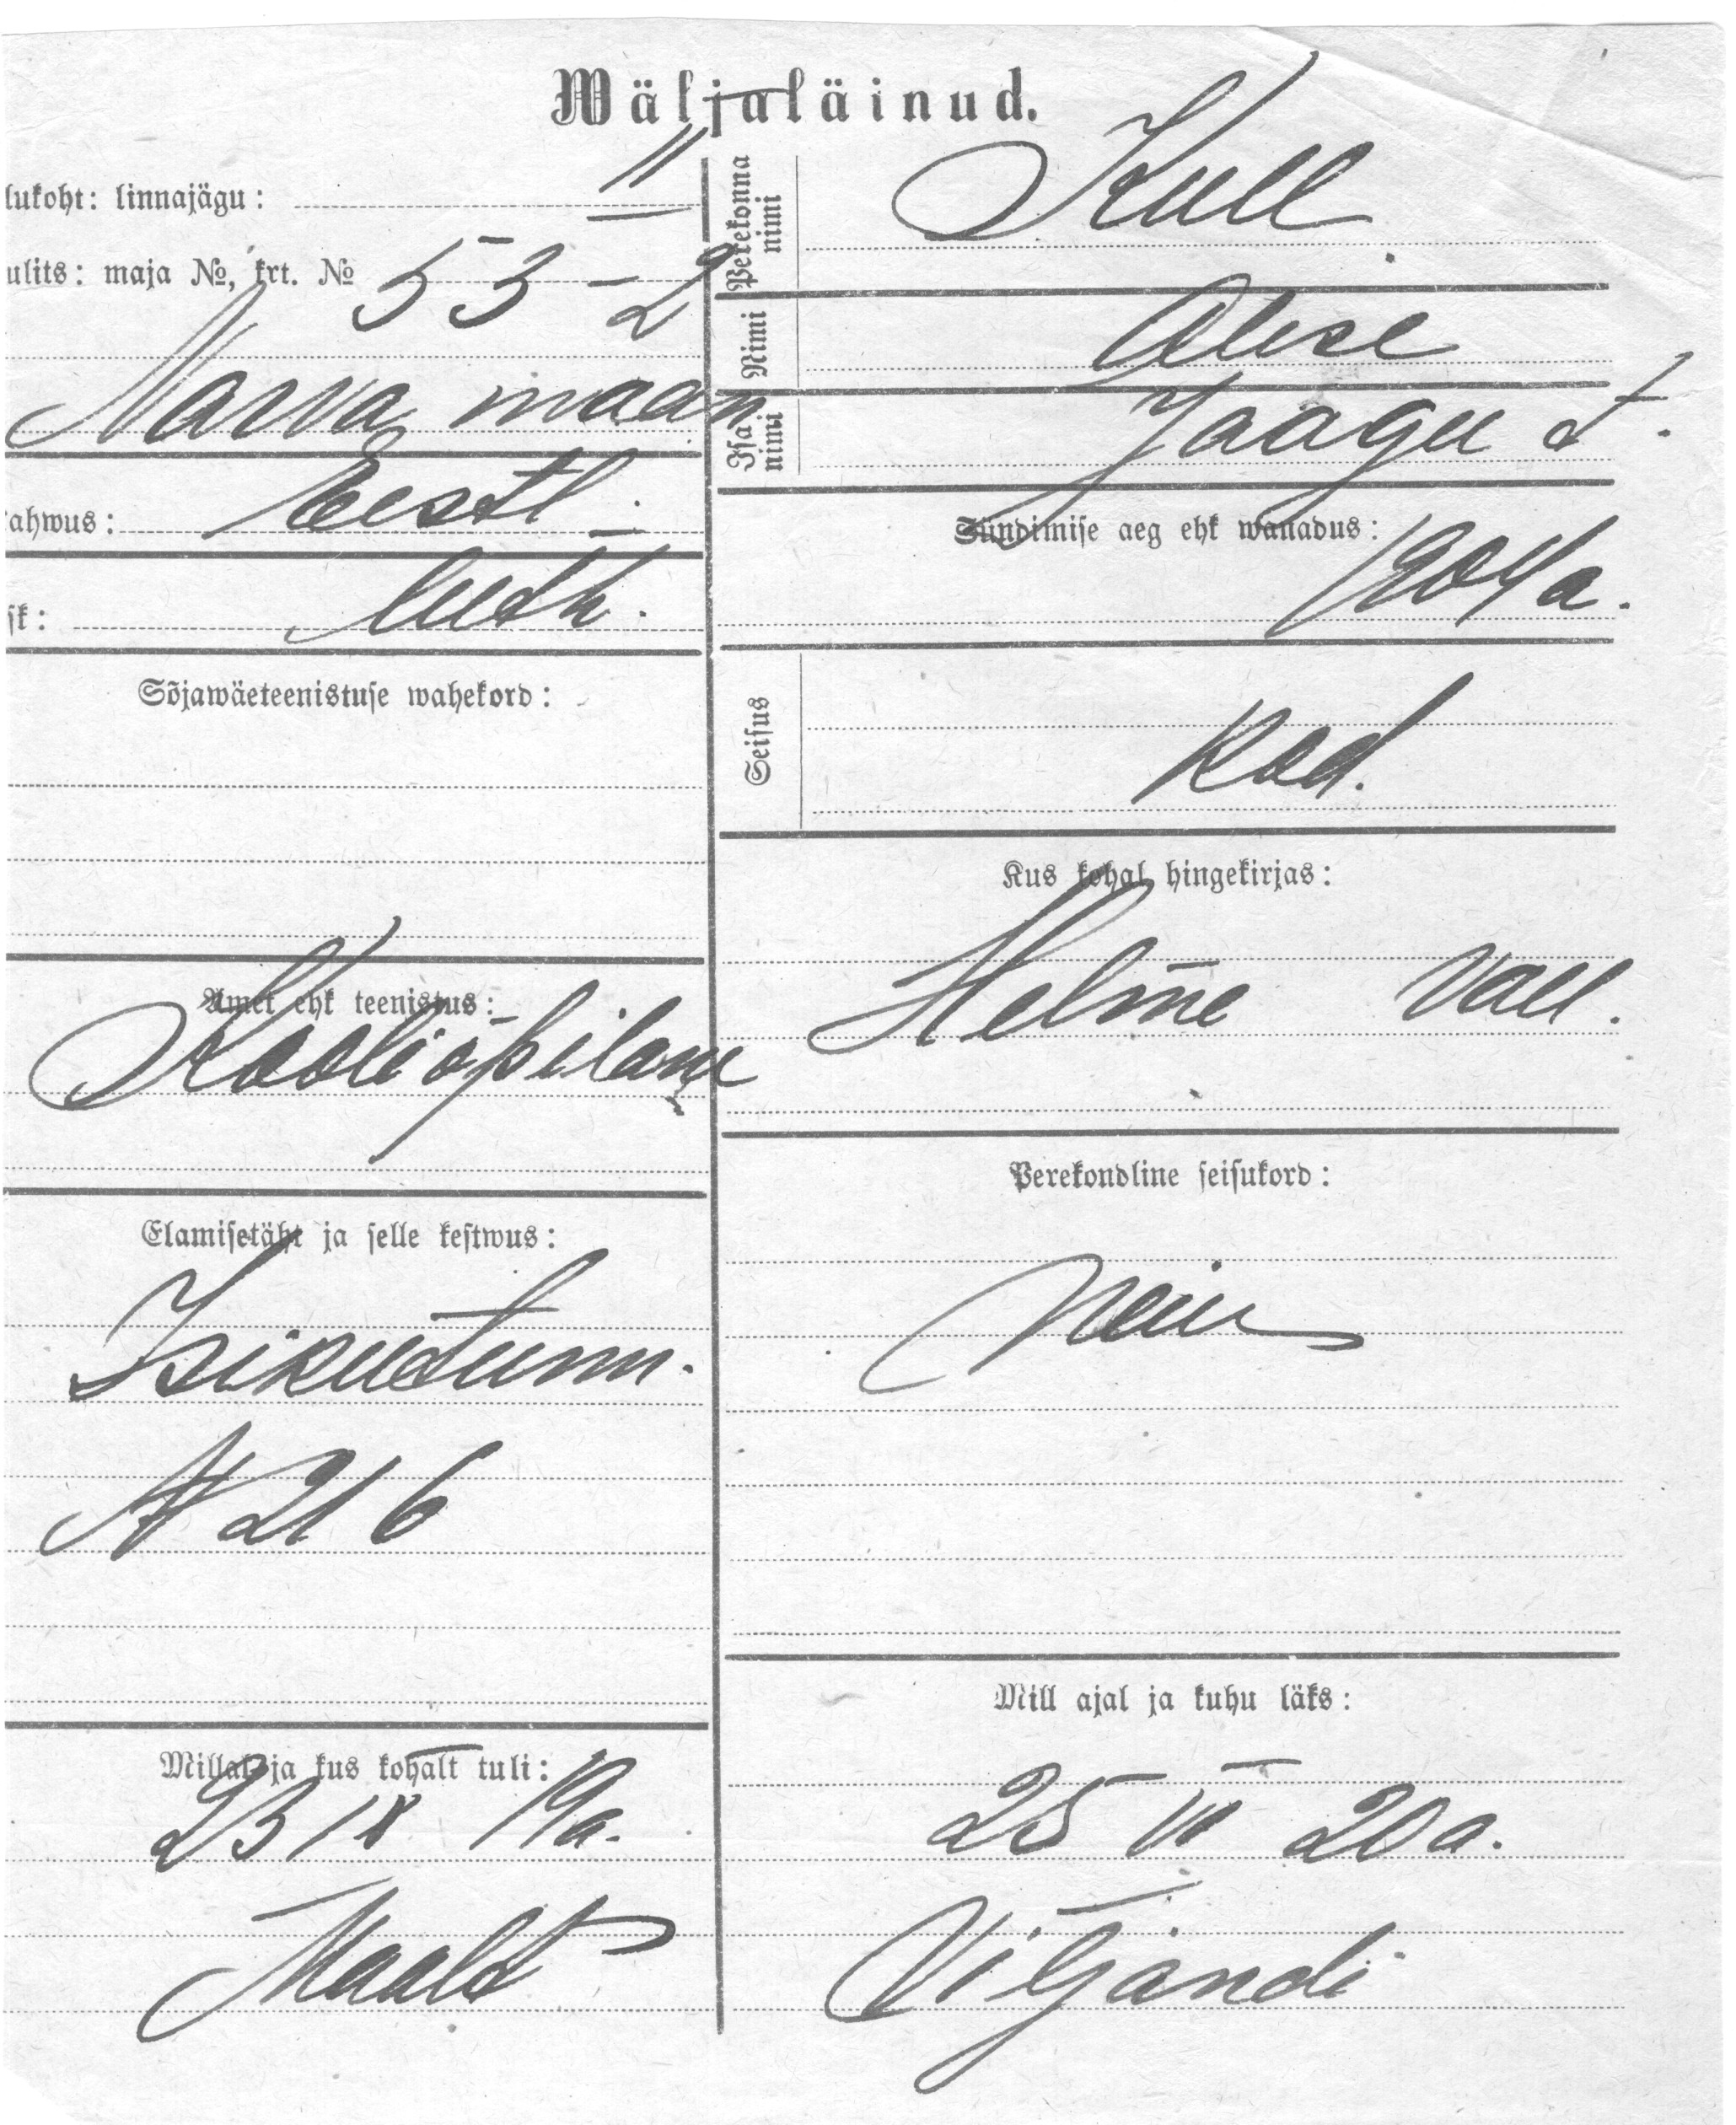 Wäljaläinud.
lukoht: linnajägu: II
ulits: maja №, krt. № 53-2
Narva maan
ahwus: Eestl.
sk: luth.
Sõjawäeteenistuse wahekord:
Amet ehk teenistus:
Kooliõpilane
Elamisetäht ja selle kestwus:
Isikutunn.
N 216
Millal ja kus kohalt tuli:
23 IX 19a.
Maalt
Perekonna nimi Kull
Nimi Alise
Isa nimi Jaagu t.
Sündimise aeg ehk wanadus:
1904a.
Seisus Kod.
Kus kohal hingekirjas:
Helme vall.
Perekondline seisukord:
Neiu
Mill ajal ja kuhu läks:
25 VI 20a.
Viljandi